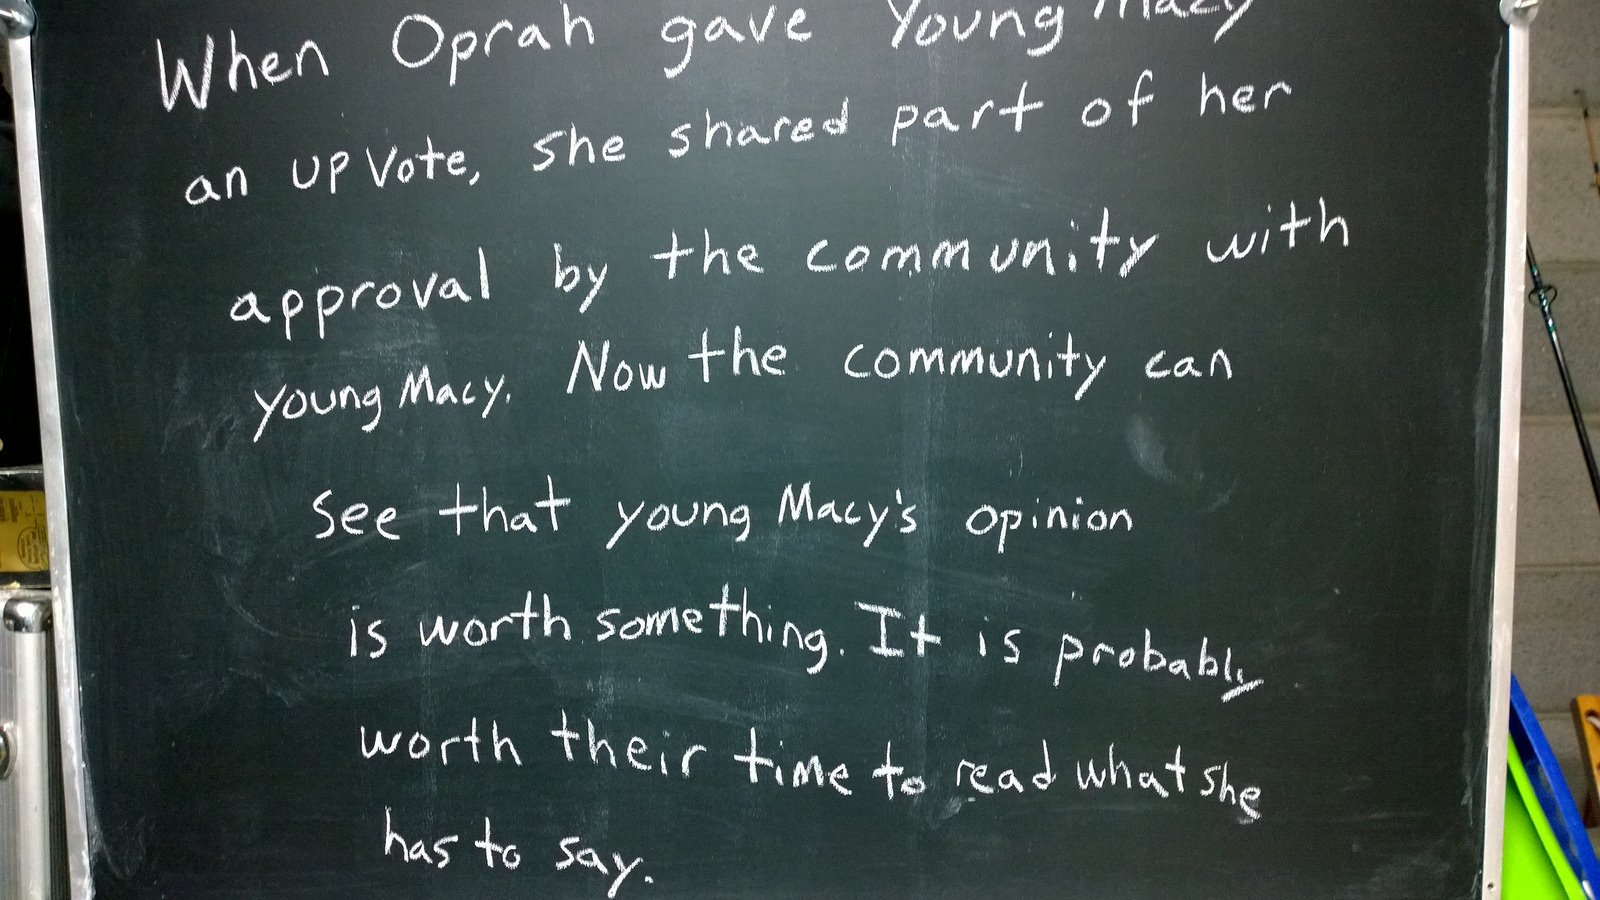 When Oprah gave Young Macy
an upvote, she shared part of her
approval by the community with
young Macy. Now the community can
see that young Macy's opinion
is worth something. It is probably
worth their time to read what she
has to say.